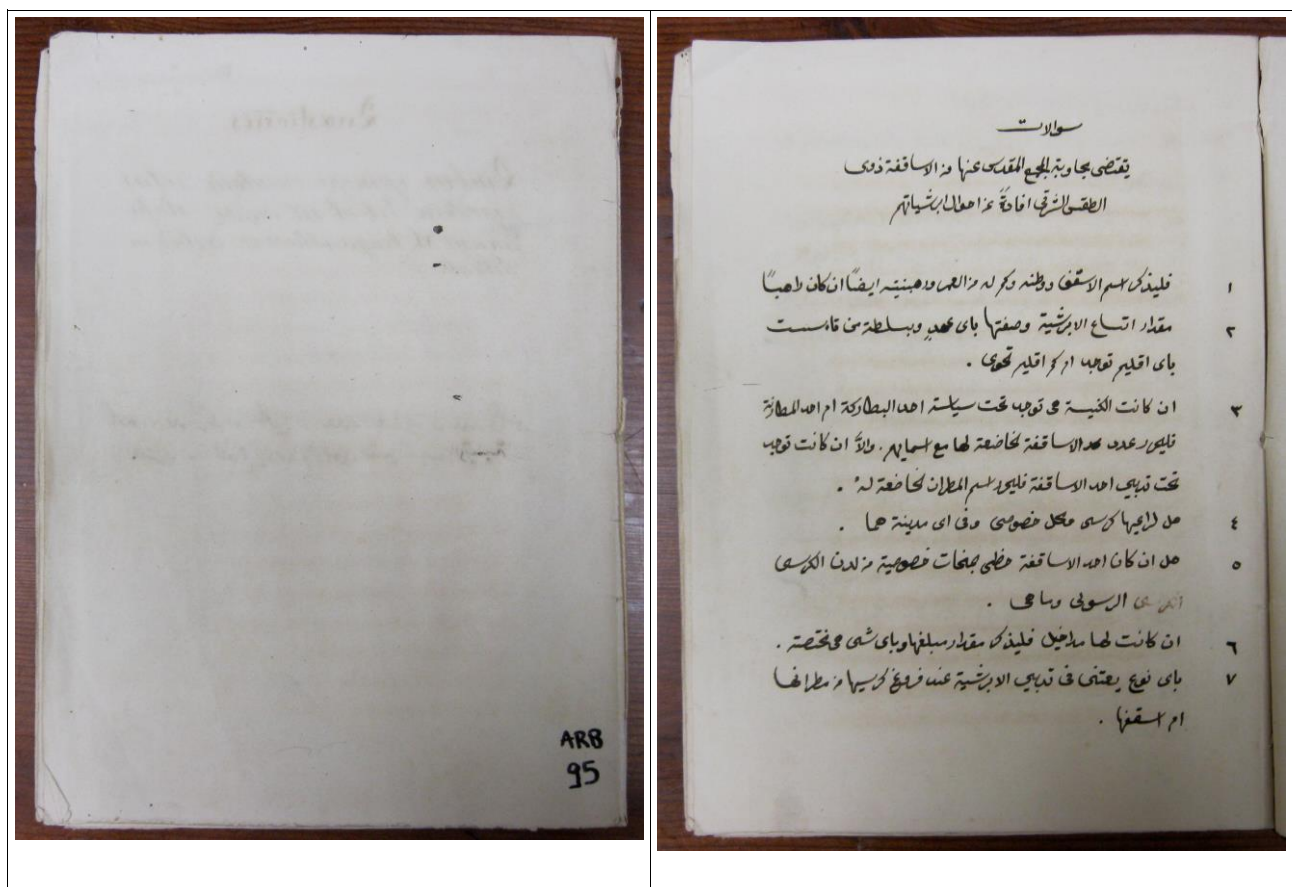 ARB
95
سوالات
يقتضى مجاوبة المجمع المقدس عنها من الاساقفة ذوى
الطقس الشرقى افادةً عن احوال ابرشياتهم
١ فليذكر اسم الاسقف ووطنه وكم له من العمر ورهبنيته ايضاً ان كان راهباً
٢ مقدار اتساع الابرشية وصفتها باى عهدٍ وبسلطة من تاسست
باى اقليم توجد ام كم اقليم تحوى .
٣ ان كانت الكنيسة هى توجد تحت سياسة احد البطاركة ام احد المطارنة
فليحرر عدد الاساقفة الخاضعة لها مع اسمايهم . والاَّ ان كانت توجد
تحت تدبير احد الاساقفة فليحرر اسم المطران الخاضعة لهُ .
٤ هل لراعيها كرسى ومحل خصوصى وفى اى مدينة هما .
٥ هل ان كان احد الاساقفة حظى بمنحات خصوصية من لدن الكرسى
الرسولى وما هى .
٦ ان كانت لها مداخيل فليذكر مقدار مبلغها وباى شى هى مختصة .
٧ باى نوع يعتنى فى تدبير الابرشية عند فروغ كرسيها من مطرانها
ام اسقفها .